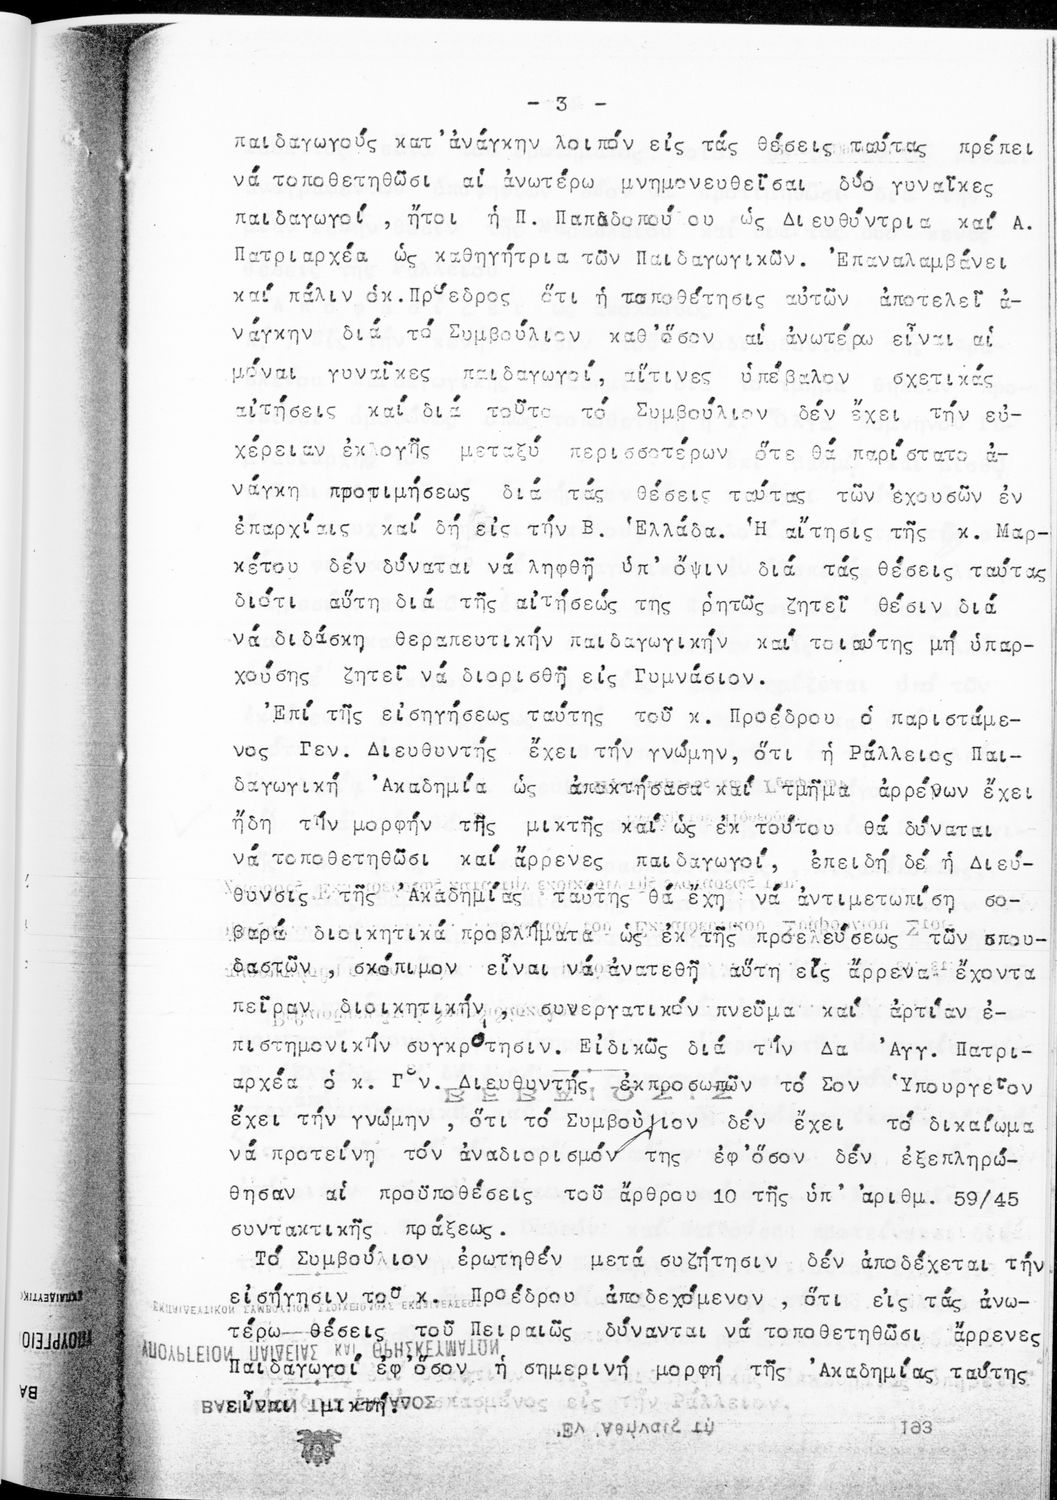 - 3 -
παιδαγωγούς κατ'ἀνάγκην λοιπόν εἰς τάς θέσεις ταύτας πρέπει
νά τοποθετηθῶσι αἱ ἀνωτέρω μνημονευθεῖσαι δύο γυναῖκες
παιδαγωγοί , ἤτοι ἡ Π. Παπαδοπού ου ὡς Διευθύντρια καί Α.
Πατριαρχέα ὡς καθηγήτρια τῶν Παιδαγωγικῶν. Ἐπαναλαμβάνει
καί πάλιν ὁκ.Πρόεδρος ὅτι ἡ τοποθέτησις αὐτῶν ἀποτελεῖ ἀ-
νάγκην διά τό Συμβούλιον καθ'ὅσον αἱ ἀνωτέρω εἶναι αἱ
μόναι γυναῖκες παιδαγωγοί, αἵτινες ὑπέβαλον σχετικάς
αἰτήσεις καί διά τοῦτο τό Συμβούλιον δέν ἔχει τήν εὐ-
χέρειαν ἐκλογῆς μεταξύ περισσοτέρων ὅτε θά παρίστατο ἀ-
νάγκη προτιμήσεως διά τάς θέσεις ταύτας τῶν ἐχουσῶν ἐν
ἐπαρχίαις καί δή εἰς τήν Β. Ἑλλάδα. Ἡ αἴτησις τῆς κ. Μαρ-
κέτου δέν δύναται νά ληφθῇ ὑπ' ὄψιν διά τάς θέσεις ταύτας
διότι αὕτη διά τῆς αἰτήσεώς της ῥητῶς ζητεῖ θέσιν διά
νά διδάσκη θεραπευτικήν παιδαγωγικήν καί τοιαύτης μή ὑπαρ-
χούσης ζητεῖ νά διορισθῇ εἰς Γυμνάσιον.
Ἐπί τῆς εἰσηγήσεως ταύτης τοῦ κ. Προέδρου ὁ παριστάμε-
νος Γεν. Διευθυντής ἔχει τήν γνώμην, ὅτι ἡ Ράλλειος Παι-
δαγωγική Ἀκαδημία ὡς ἀποκτήσασα καί τμῆμα ἀρρένων ἔχει
ἤδη τήν μορφήν τῆς μικτῆς καί ὡς ἐκ τούτου θά δύναται
νά τοποθετηθῶσι καί ἄρρενες παιδαγωγοί, ἐπειδή δέ ἡ Διεύ-
θυνσις τῆς Ἀκαδημίας ταύτης θά ἔχη νά ἀντιμετωπίση σο-
βαρά διοικητικά προβλήματα ὡς ἐκ τῆς προελεύσεως τῶν σπου-
δαστῶν , σκόπιμον εἶναι νά ἀνατεθῇ αὕτη εἰς ἄρρενα ἔχοντα
πεῖραν διοικητικήν , συνεργατικόν πνεῦμα καί ἀρτίαν ἐ-
πιστημονικήν συγκρότησιν. Εἰδικῶς διά τήν Δα Ἀγγ. Πατρι-
αρχέα ὁ κ. Γεν. Διευθυντής ἐκπροσωπῶν τό Σον Ὑπουργεῖον
ἔχει τήν γνώμην , ὅτι τό Συμβούλιον δέν ἔχει τό δικαίωμα
νά προτείνη τόν ἀναδιορισμόν της ἐφ'ὅσον δέν ἐξεπληρώ-
θησαν αἱ προϋποθέσεις τοῦ ἄρθρου 10 τῆς ὑπ' ἀριθμ. 59/45
συντακτικῆς πράξεως.
Τό Συμβούλιον ἐρωτηθέν μετά συζήτησιν δέν ἀποδέχεται τήν
εἰσήγησιν τοῦ κ. Προέδρου ἀποδεχόμενον , ὅτι εἰς τάς ἀνω-
τέρω θέσεις τοῦ Πειραιῶς δύνανται νά τοποθετηθῶσι ἄρρενες
Παιδαγωγοί ἐφ'ὅσον ἡ σημερινή μορφή τῆς Ἀκαδημίας ταύτης
εἶναι μικτή.